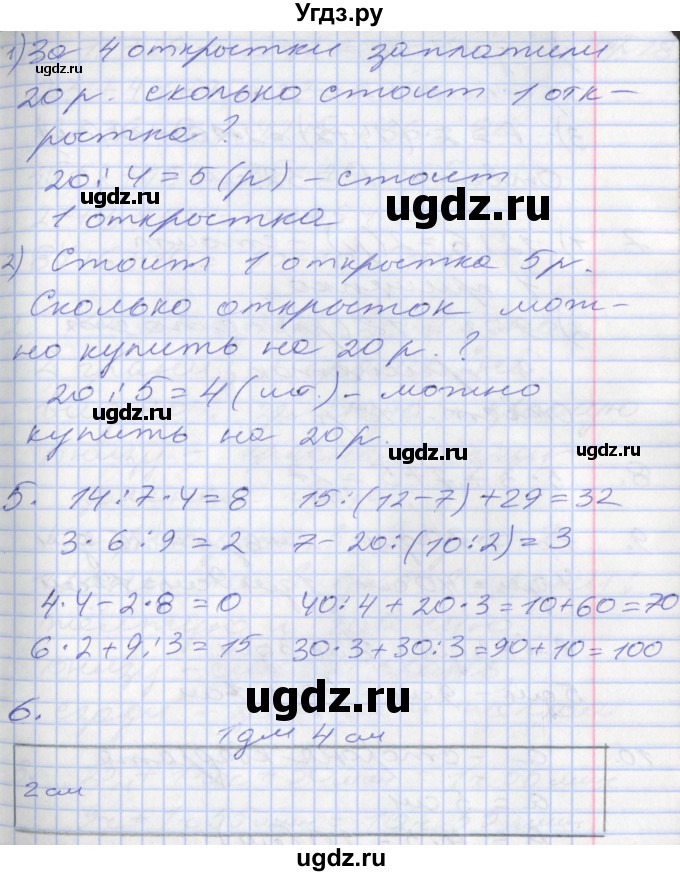 Угдз.ру
1) За 4 открытки заплатили
20 р. сколько стоит 1 отк-
рытка?
20 : 4 = 5 (р) – стоит
1 открытка
2) Стоит 1 открытка 5 р.
Сколько открыток мож-
но купить на 20 р.?
20 : 5 = 4 (шт.) – можно
купить на 20 р.
5. 14 : 7 · 4 = 8 15 : (12 – 7) + 29 = 32
3 · 6 : 9 = 2 7 – 20 : (10 : 2) = 3
4 · 4 – 2 · 8 = 0 40 : 4 + 20 · 3 = 10 + 60 = 70
6 · 2 + 9 : 3 = 15 30 · 3 + 30 : 3 = 90 + 10 = 100
6.
1 дм 4 см
2 см
ugdz.ru
ugdz.ru
ugdz.ru
ugdz.ru
ugdz.ru
ugdz.ru
ugdz.ru
ugdz.ru
ugdz.ru